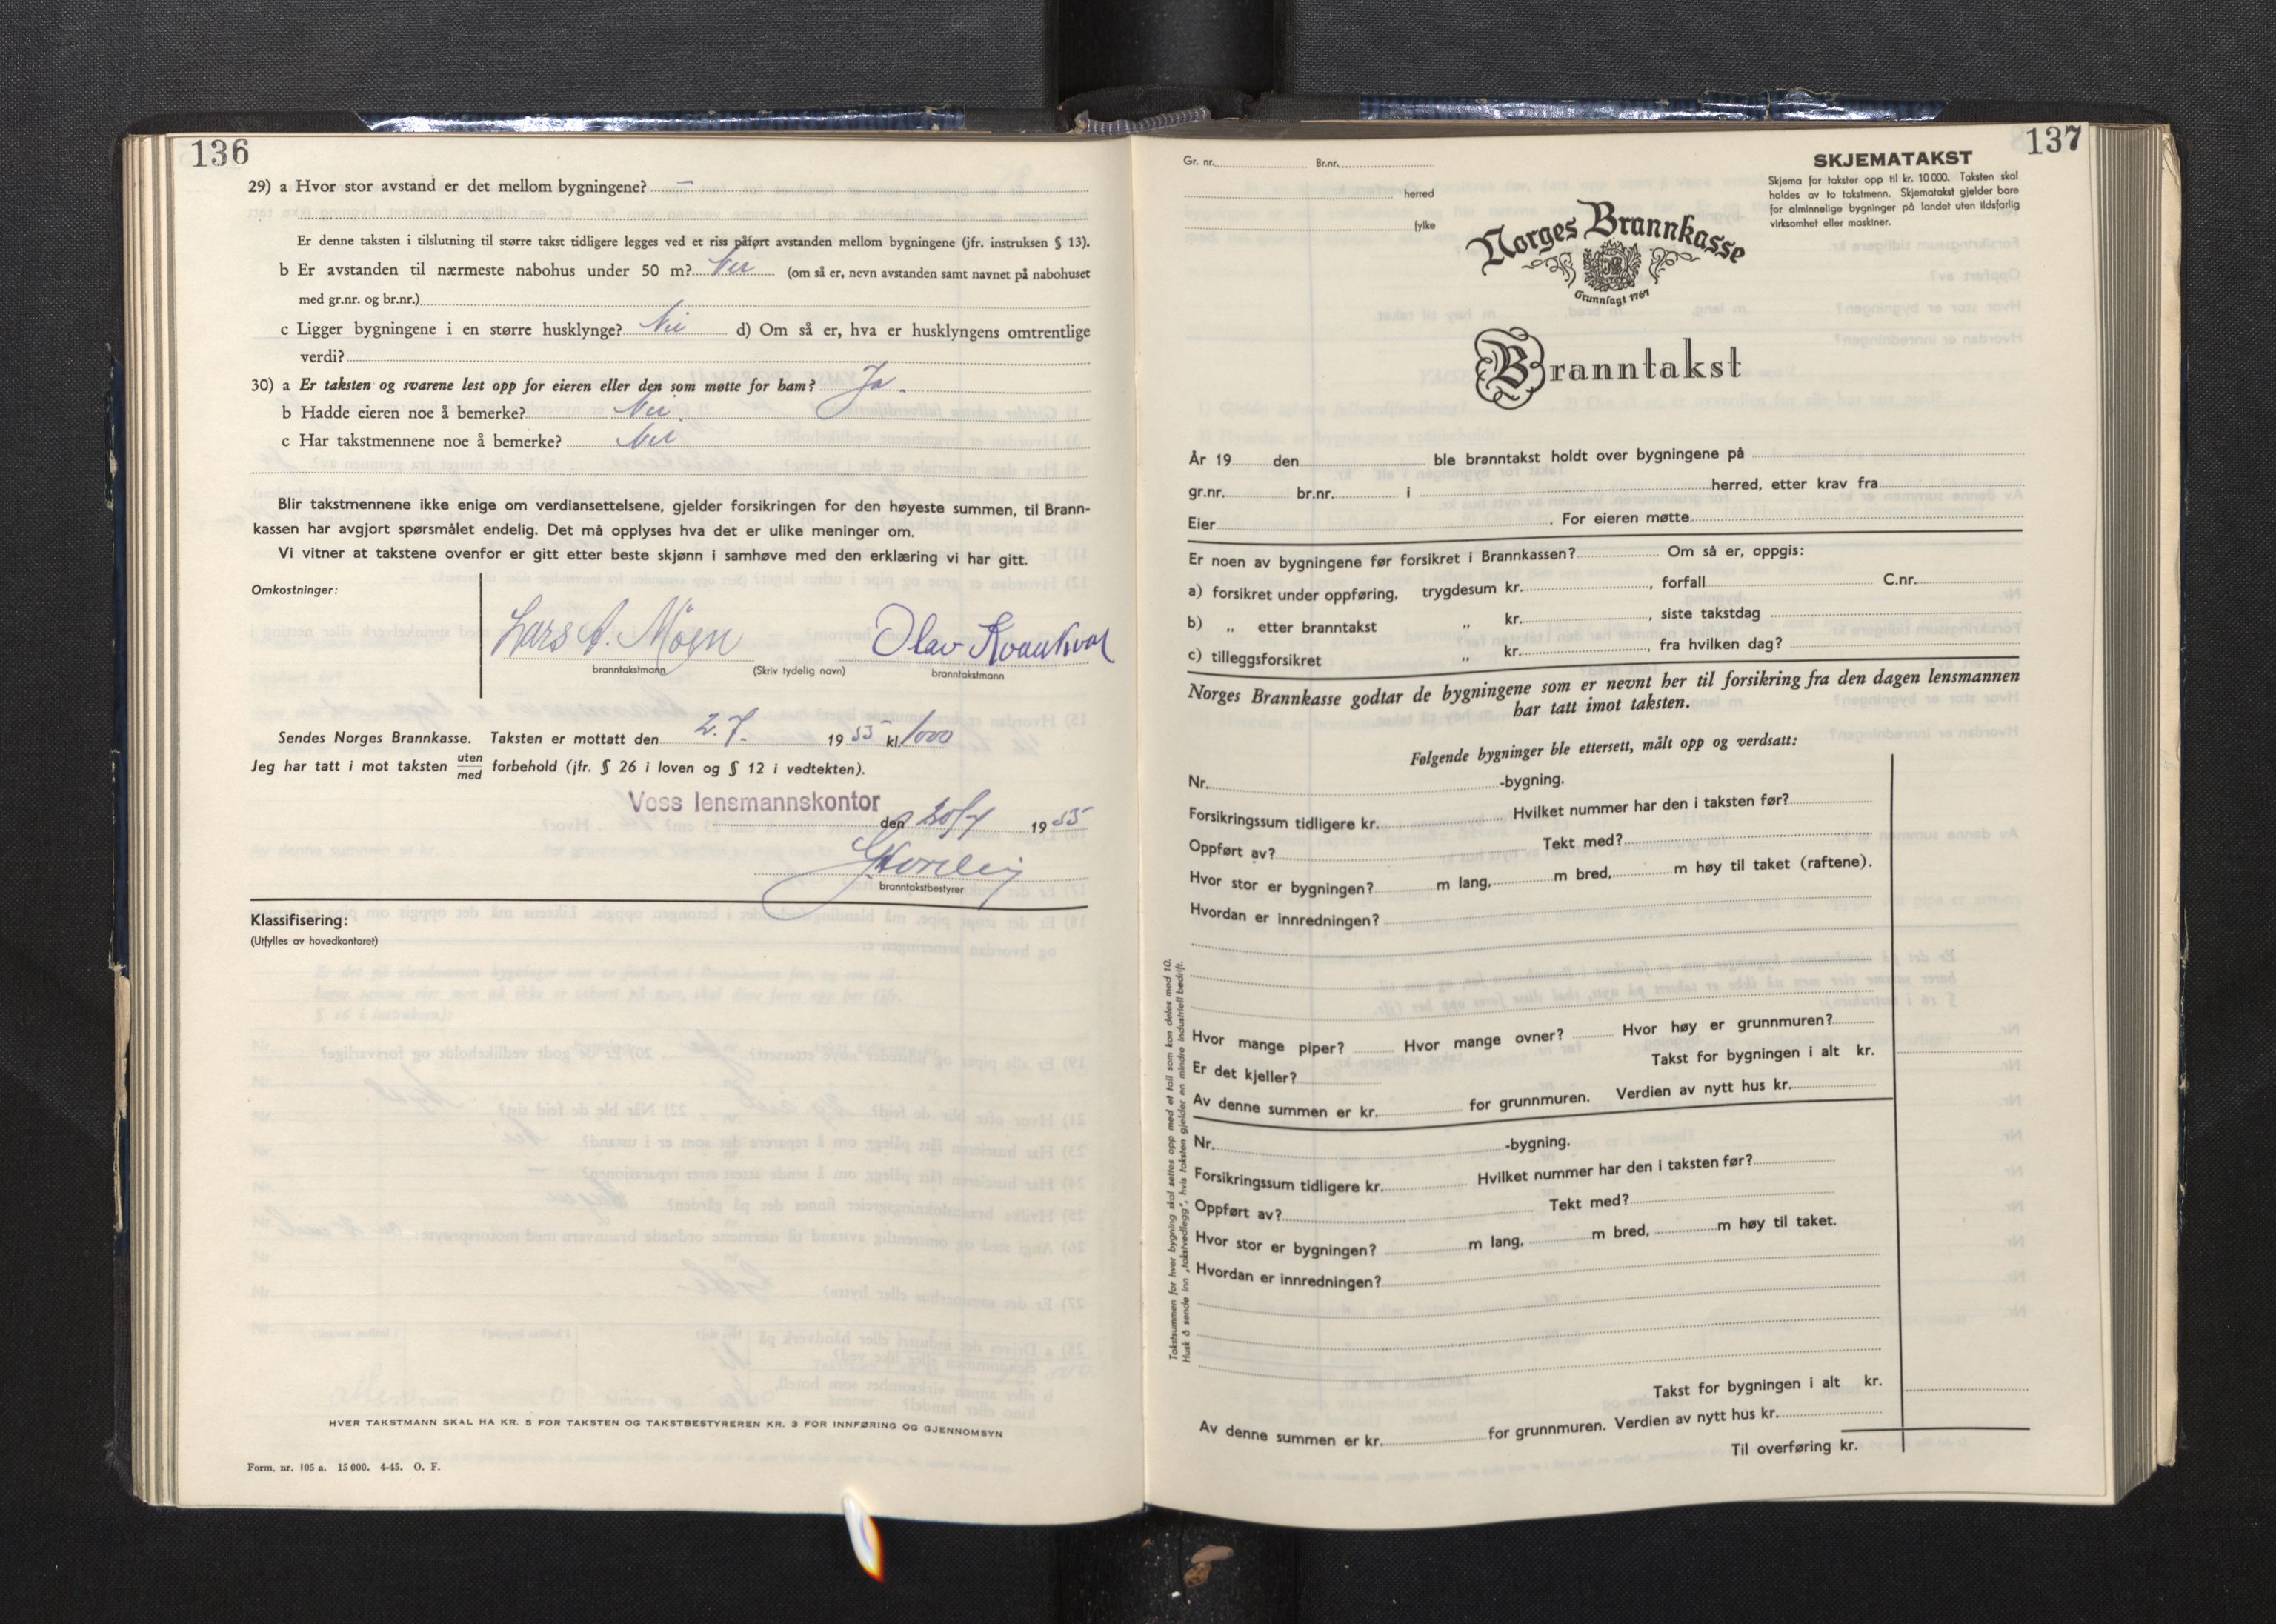 136
29) a Hvor stor avstand er det mellom bygningene? –
Er denne taksten i tilslutning til større takst tidligere legges ved et riss påført avstanden mellom bygningene (jfr. instruksen § 13).
b Er avstanden til nærmeste nabohus under 50 m? Nei (om så er, nevn avstanden samt navnet på nabohuset
med gr.nr. og br.nr.)
c Ligger bygningene i en større husklynge? Nei d) Om så er, hva er husklyngens omtrentlige
verdi?
30) a Er taksten og svarene lest opp for eieren eller den som møtte for ham? Ja.
b Hadde eieren noe å bemerke? Nei
c Har takstmennene noe å bemerke? Nei
Blir takstmennene ikke enige om verdiansettelsene, gjelder forsikringen for den høyeste summen, til Brann-
kassen har avgjort spørsmålet endelig. Det må opplyses hva det er ulike meninger om.
Vi vitner at takstene ovenfor er gitt etter beste skjønn i samhøve med den erklæring vi har gitt.
Omkostninger:
Lars A. Møen Olav Kvankvol
branntakstmann (Skriv tydelig navn) branntakstmann
Sendes Norges Brannkasse. Taksten er mottatt den 2.7. 1955 kl. 1000
Jeg har tatt i mot taksten uten/med forbehold (jfr. § 26 i loven og § 12 i vedtekten).
Voss lensmannskontor den 20/7 1955
branntakstbestyrer
Klassifisering:
(Utfylles av hovedkontoret)
HVER TAKSTMANN SKAL HA KR. 5 FOR TAKSTEN OG TAKSTBESTYREREN KR. 3 FOR INNFØRING OG GJENNOMSYN
Form. nr. 105 a. 15 000. 4-45. O. F.
137
Gr. nr. Br.nr.
herred
fylke
SKJEMATAKST
Skjema for takster opp til kr. 10 000. Taksten skal
holdes av to takstmenn. Skjematakst gjelder bare
for alminnelige bygninger på landet uten ildsfarlig
virksomhet eller maskiner.
Norges Brannkasse
Grunnlagt 1767
Branntakst
År 19 den ble branntakst holdt over bygningene på
gr.nr. br.nr. i herred, etter krav fra
Eier . For eieren møtte
Er noen av bygningene før forsikret i Brannkassen? Om så er, oppgis:
a) forsikret under oppføring, trygdesum kr. , forfall C.nr.
b) „ etter branntakst „ kr. , siste takstdag
c) tilleggsforsikret „ kr. , fra hvilken dag?
Norges Brannkasse godtar de bygningene som er nevnt her til forsikring fra den dagen lensmannen
har tatt imot taksten.
Følgende bygninger ble ettersett, målt opp og verdsatt:
Nr. -bygning.
Forsikringssum tidligere kr. Hvilket nummer har den i taksten før?
Oppført av? Tekt med?
Hvor stor er bygningen? m lang, m bred, m høy til taket (raftene).
Hvordan er innredningen?
Hvor mange piper? Hvor mange ovner? Hvor høy er grunnmuren?
Er det kjeller? Takst for bygningen i alt kr.
Av denne summen er kr. for grunnmuren. Verdien av nytt hus kr.
Nr. -bygning.
Forsikringssum tidligere kr. Hvilket nummer har den i taksten før?
Oppført av? Tekt med?
Hvor stor er bygningen? m lang, m bred, m høy til taket.
Hvordan er innredningen?
Takst for bygningen i alt kr.
Av denne summen er kr. for grunnmuren. Verdien av nytt hus kr.
Til overføring kr.
Takstsummen for hver bygning skal settes opp med et tall som kan deles med 10.
Husk å sende inn „takstvedlegg", hvis taksten gjelder en mindre industriell bedrift.